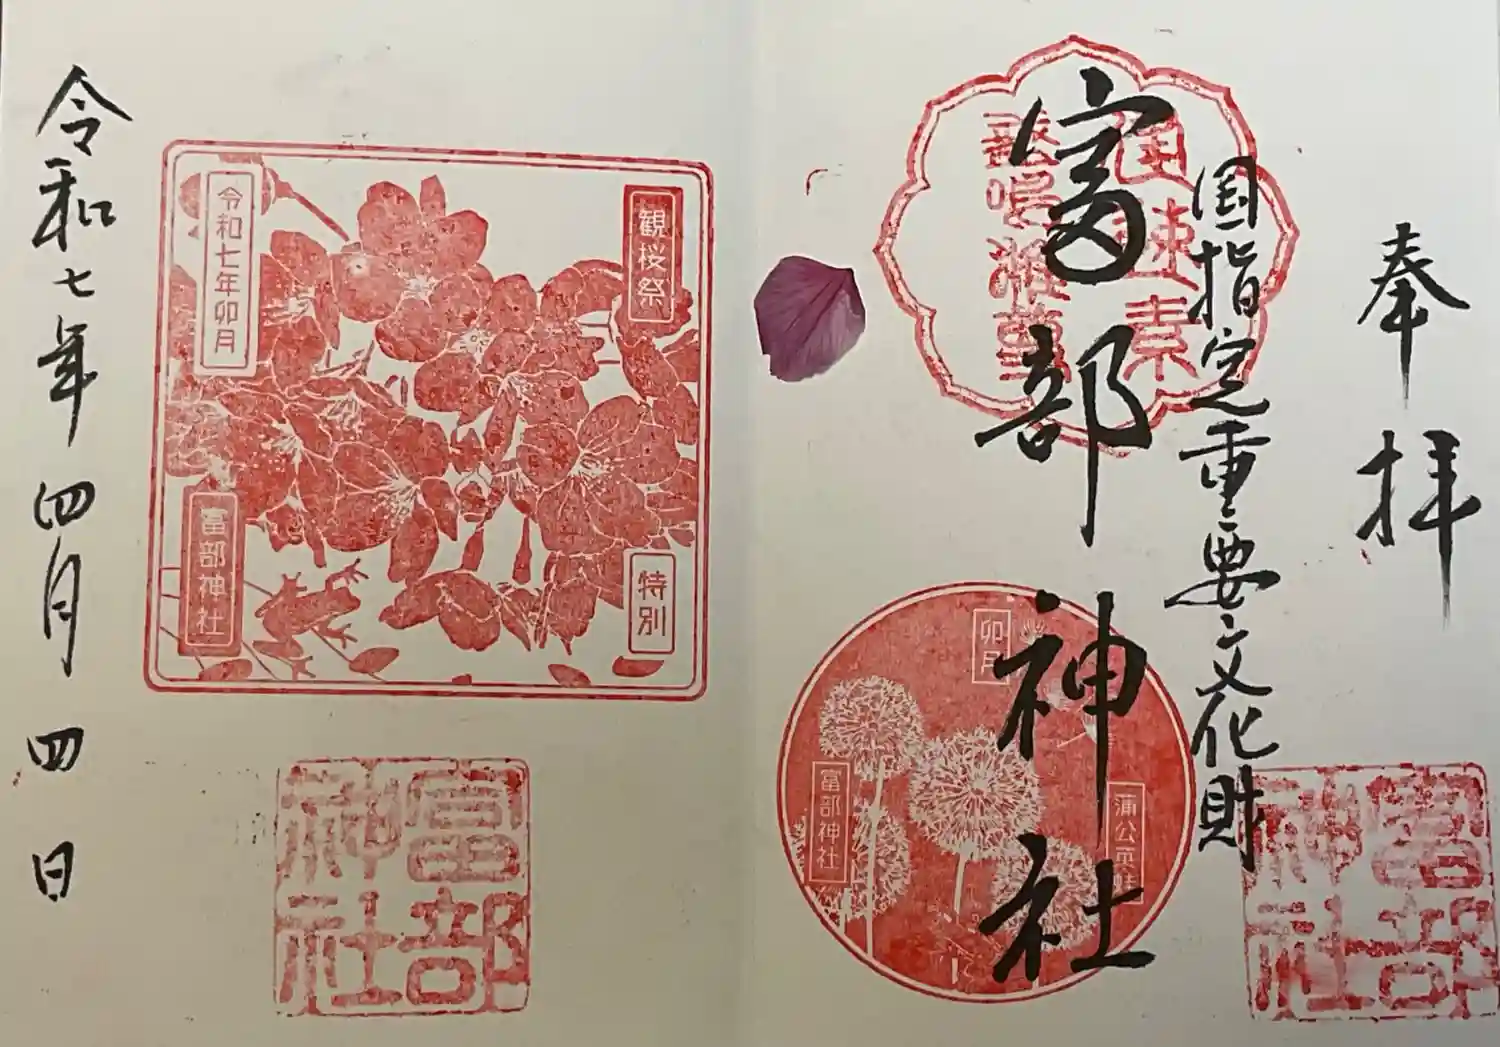 奉拝
国指定重要文化財
富部神社
卯月
富部神社
富部
神社
観桜祭
特別
令和七年卯月
富部神社
富部
神社
令和七年四月四日